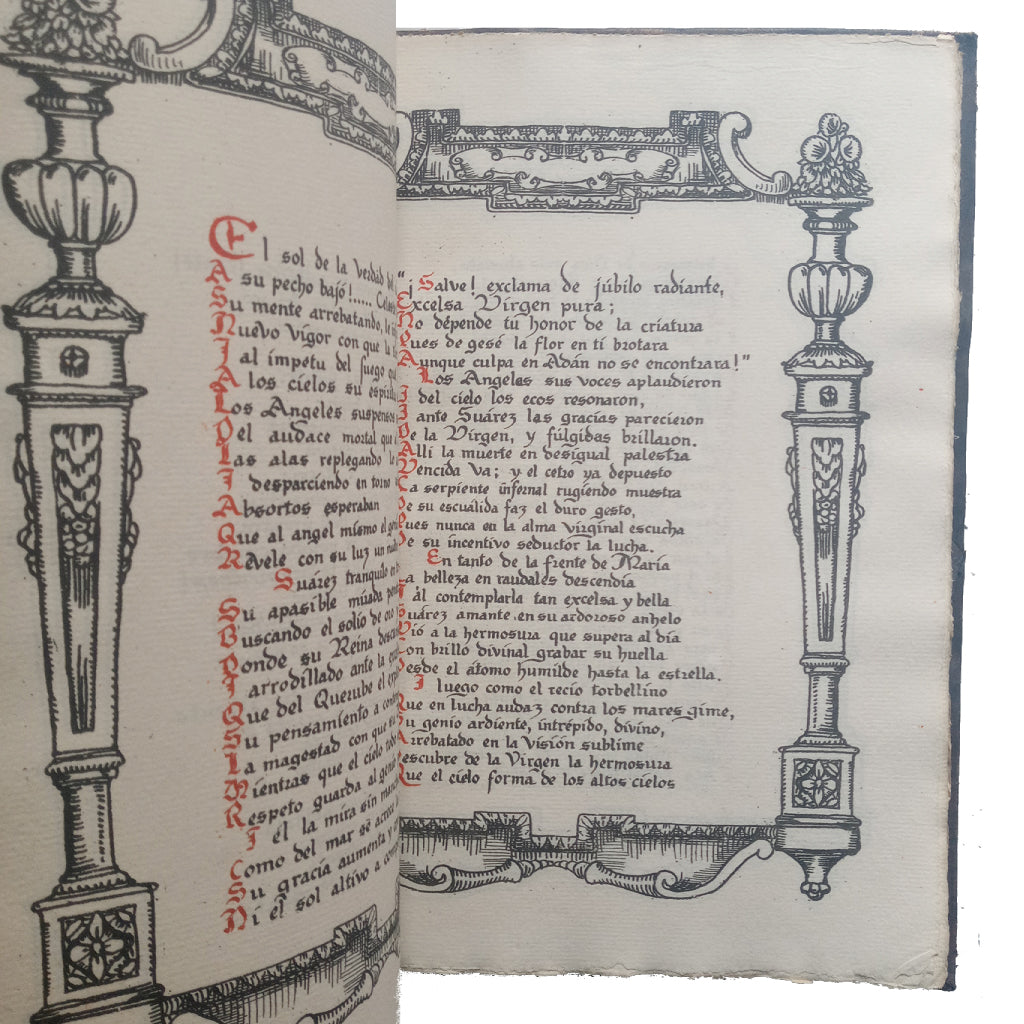 El sol de la verdad
su pecho bajó!.....
Su mente arrebatando,
Nuevo vigor con que la
al ímpetu del fuego
A los cielos su
Los Angeles suspensos
Del audace mortal que
Las alas replegando
I desparciendo en torno
Absortos esperaban
Que al angel mismo el
Revele con su luz un
Suárez tranquilo en
Su apasible mirada
Buscando el solio de oro
Donde su Reina
I arrodillado ante la
Que del Querube el
Su pensamiento a
La magestad con que su
Mientras que el cielo todo
Respeto guarda al
I el la mira sin
Como del mar se
Su gracia aumenta y
Ni el sol altivo a
"¡Salve! exclama de júbilo radiante,
Excelsa Virgen pura;
No dépende tú honor de la criatura
Pues de gesé la flor en ti brotara
Aunque culpa en Adán no se encontrara!"
Los Angeles sus voces aplaudieron
I del cielo los ecos resonaron,
I ante Suárez las gracias parecieron
De la Virgen, y fúlgidas brillaron.
Allí la muerte en desigual palestra
Vencida va; y el cetro ya depuesto
La serpiente infernal rugiendo muestra
De su escuálida faz el duro gesto,
Pues nunca en la alma virginal escucha
De su incentivo seductor la lucha.
En tanto de la frente de María
La belleza en raudales descendía
I ál contemplarla tan excelsa y bella
Suárez amante en su ardoroso anhelo
Vió a la hermosura que supera al día
Con brillo divinal grabar su huella
Desde el átomo humilde hasta la estrella.
I luego como el recio torbellino
Que en lucha audaz contra los mares gime,
Su genio ardiente, intrépido, divino,
Arrebatado en la visión sublime
Descubre de la Virgen la hermosura
Que el cielo forma de los altos cielos